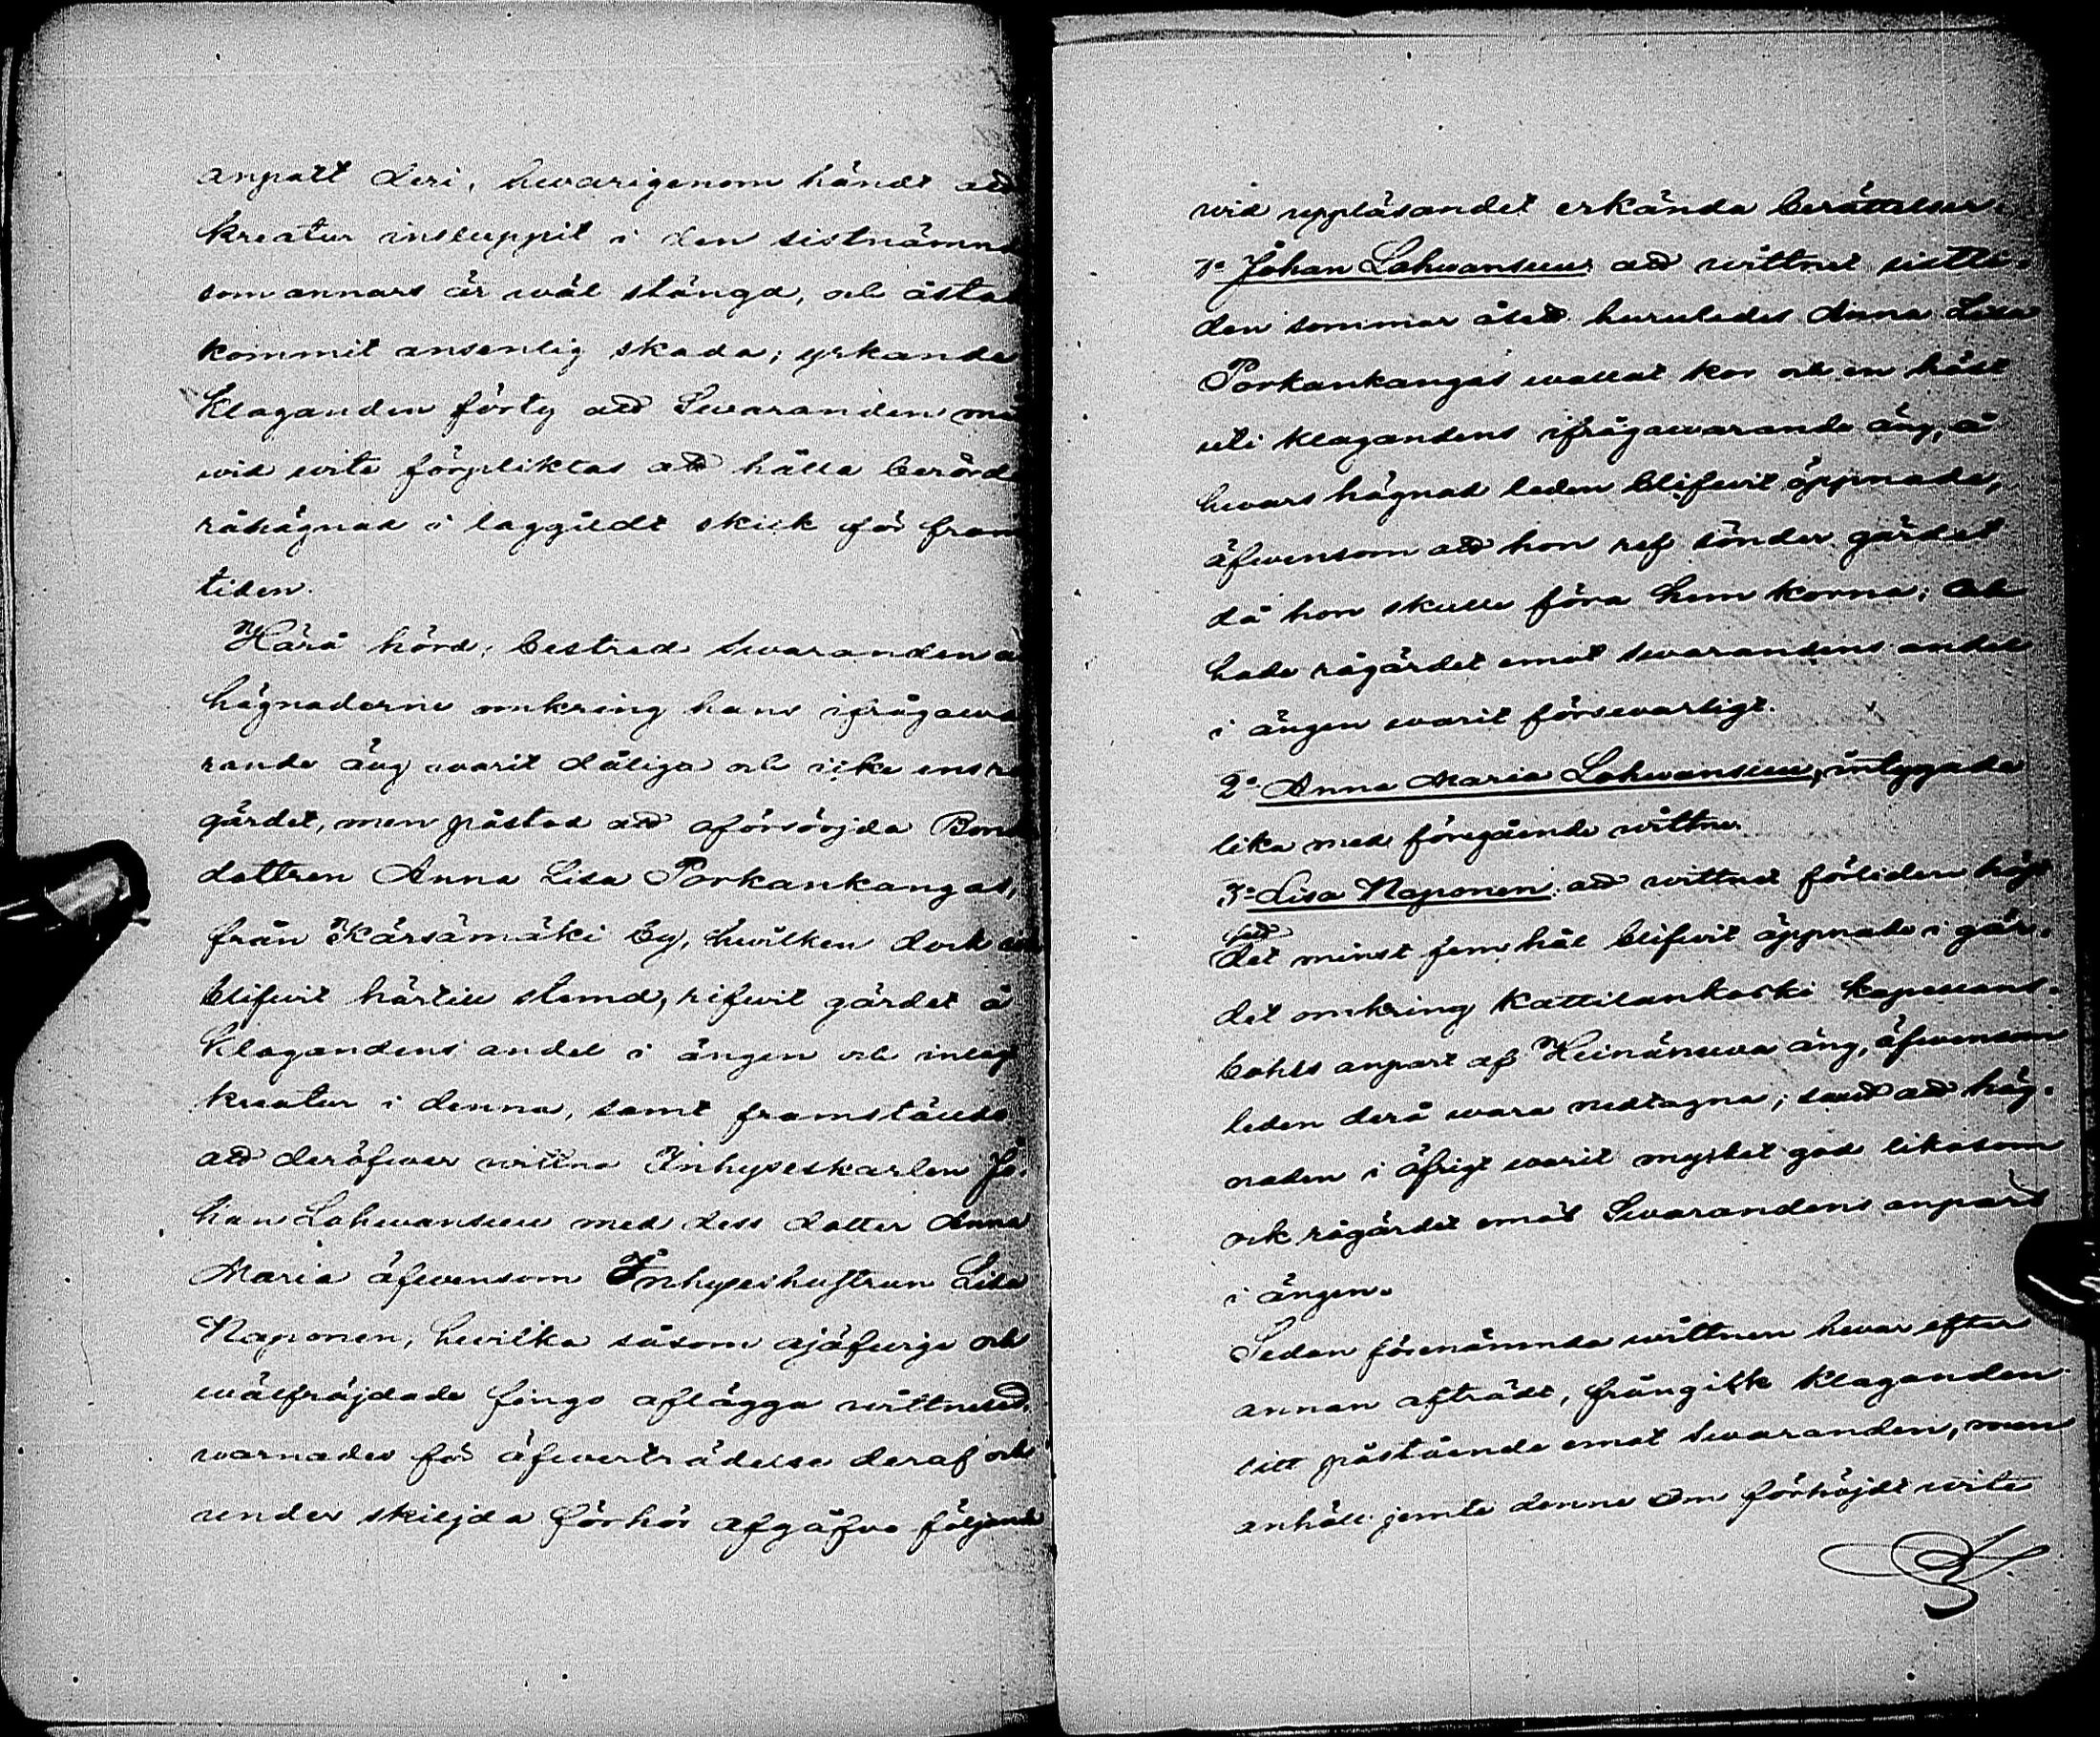 anpart deri, hwarigenom händt att
kreatur insluppit i den sistnämnd
som annars är wäl stängd, och åstad
kommit ansenlig skada; yrkande
Klaganden förty att Swaranden må
wid wite förpliktas att hålla berörde
råhägnad i laggildt skick för fram
tiden.
Härå hörd, bestred Swaranden a
hägnaderne omkring hans ifrågawa
rande äng warit dåliga och icke ens rå
gärdet, men påstod att oförsörjda Bond
dottren Anna Lisa Porkankangas,
från Kärsämäki by, hwilken dock
blifwit härtill stemd, rifwit gärdet å
Klagandens andel i ängen och inlagt
kreatur i denna, samt framstälde
att deröfwer wittna Inhyseskarlen Jo-
han Lohwansuu med dess dotter Anna
Maria äfwensom Inhyseshustrun Lisa
Naponen, hwilka såsom ojäfwige och
wälfräjdade fingo aflägga wittnesed,
warnades för öfwerträdelse deraf och
under skiljda förhör afgåfwo följande
wid uppläsandet erkända berättelser.
1o Johan Lohwansuu: att wittnet sistli-
den sommar åsett huruledes Anna Lisa
Porkankangas wallat kor och en häst
uti klagandens ifrågawarande äng, å
hwars hägnad leden blifwit öppnade,
äfwensom att hon ref sönder gärdet
då hon skulle föra hem korna; och
hade rågärdet emot swarandens andel
i ängen warit förswarligt.
2o Anna Maria Lohwansuu, intygade
lika med föregående wittne.
3o Lisa Naponen: att wittnet förliden höst
sett
det minst fem hål blifwit öppnade i gär-
det omkring Kattilankoski kapellans-
bohls anpart af Heinänewa äng, äfwensom
leden derå wara nedtagna; samt att häg-
naden i öfrigt warit mycket god likasom
ock rågärdet emot Swarandens anpart
i ängen.
Sedan förenämnda wittnen hwar efter
annan afträdt, frångick Klaganden
sitt påstående emot Swaranden, men
anhöll jemte denne om förhöjdt wite